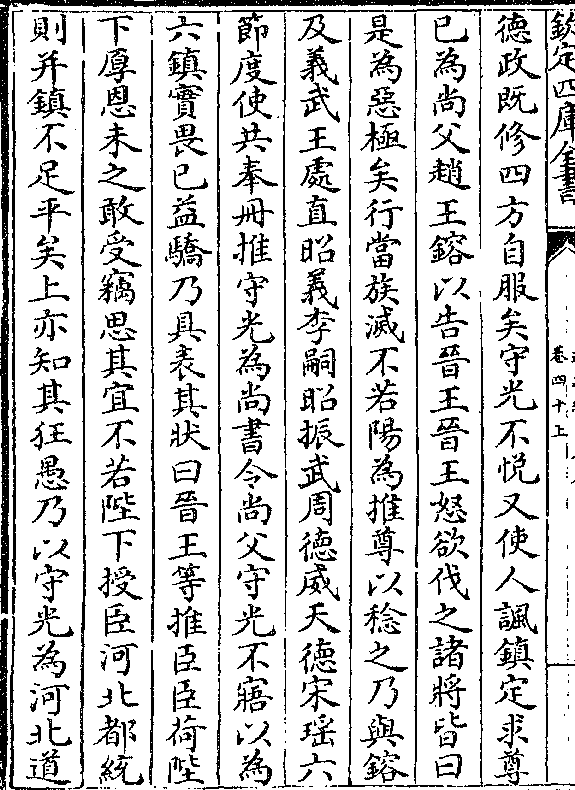 欽定四庫全書
卷四十上
德政既修四方自服矣守光不悦又使人諷鎮定求尊
已為尚父趙王鎔以告晉王晉王怒欲伐之諸將皆曰
是為惡極矣行當族滅不若陽為推尊以稔之乃與鎔
及義武王處直昭義李嗣昭振武周德威天德宋瑶六
節度使共奉冊推守光為尚書令尚父守光不寤以為
六鎮實畏已益驕乃具表其狀曰晉王等推臣臣荷陛
下厚恩未之敢受竊思其宜不若陛下授臣河北都統
則并鎮不足平矣上亦知其狂愚乃以守光為河北道